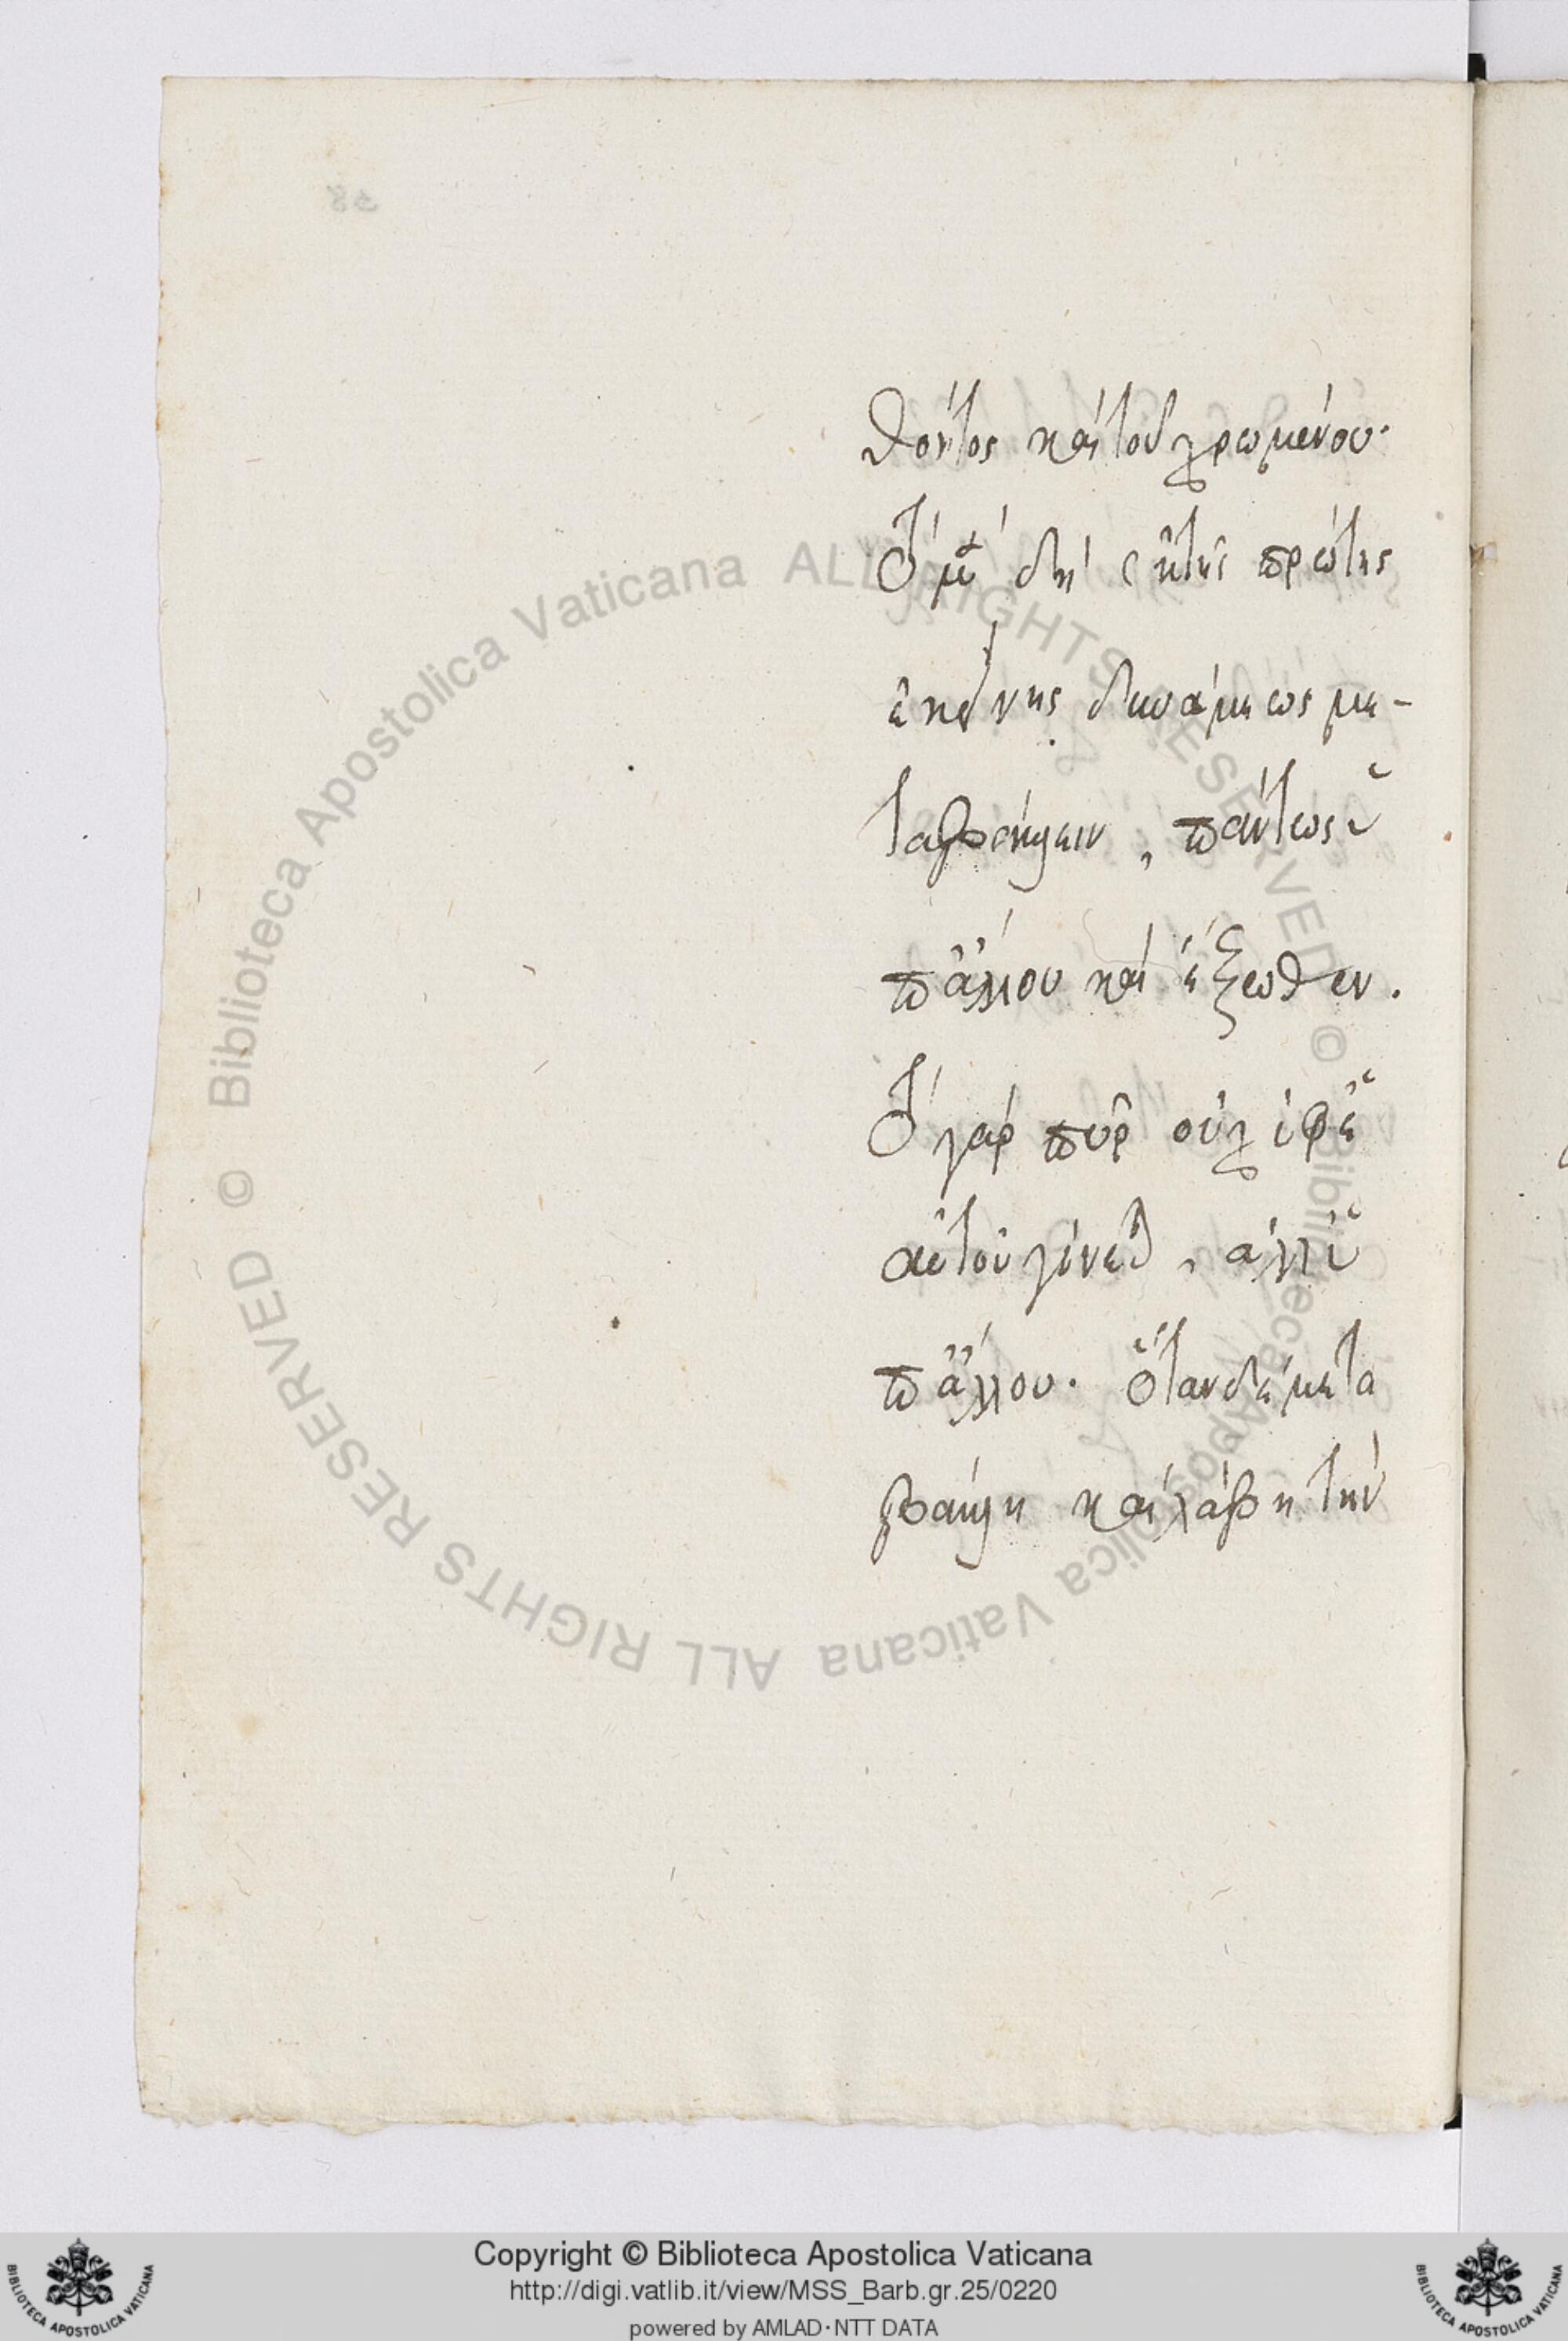 θόντος καὶ τοῦ χρωμένου.
Τὸ μὲν δὴ ἐκ τῆς πρώτης
ἐκείνης δυνάμεως με-
ταβαίνειν, πάντως ὑ
π' ἄλλου καὶ ἔξωθεν.
Τὸ γὰρ πῦρ οὐχ ὑφ' ἑ
αυτοῦ γίνεται, ἀλλ' ὑ
π' ἄλλου. ὅταν δὲ μετα
βαίνῃ καὶ λάβῃ τὴν
© Biblioteca Apostolica Vaticana ALL RIGHTS RESERVED © Biblioteca Apostolica Vaticana ALL RIGHTS RESERVED
Copyright © Biblioteca Apostolica Vaticana
http://digi.vatlib.it/view/MSS_Barb.gr.25/0220
powered by AMLAD·NTT DATA
BIBLIOTECA APOSTOLICA VATICANA
BIBLIOTECA APOSTOLICA VATICANA